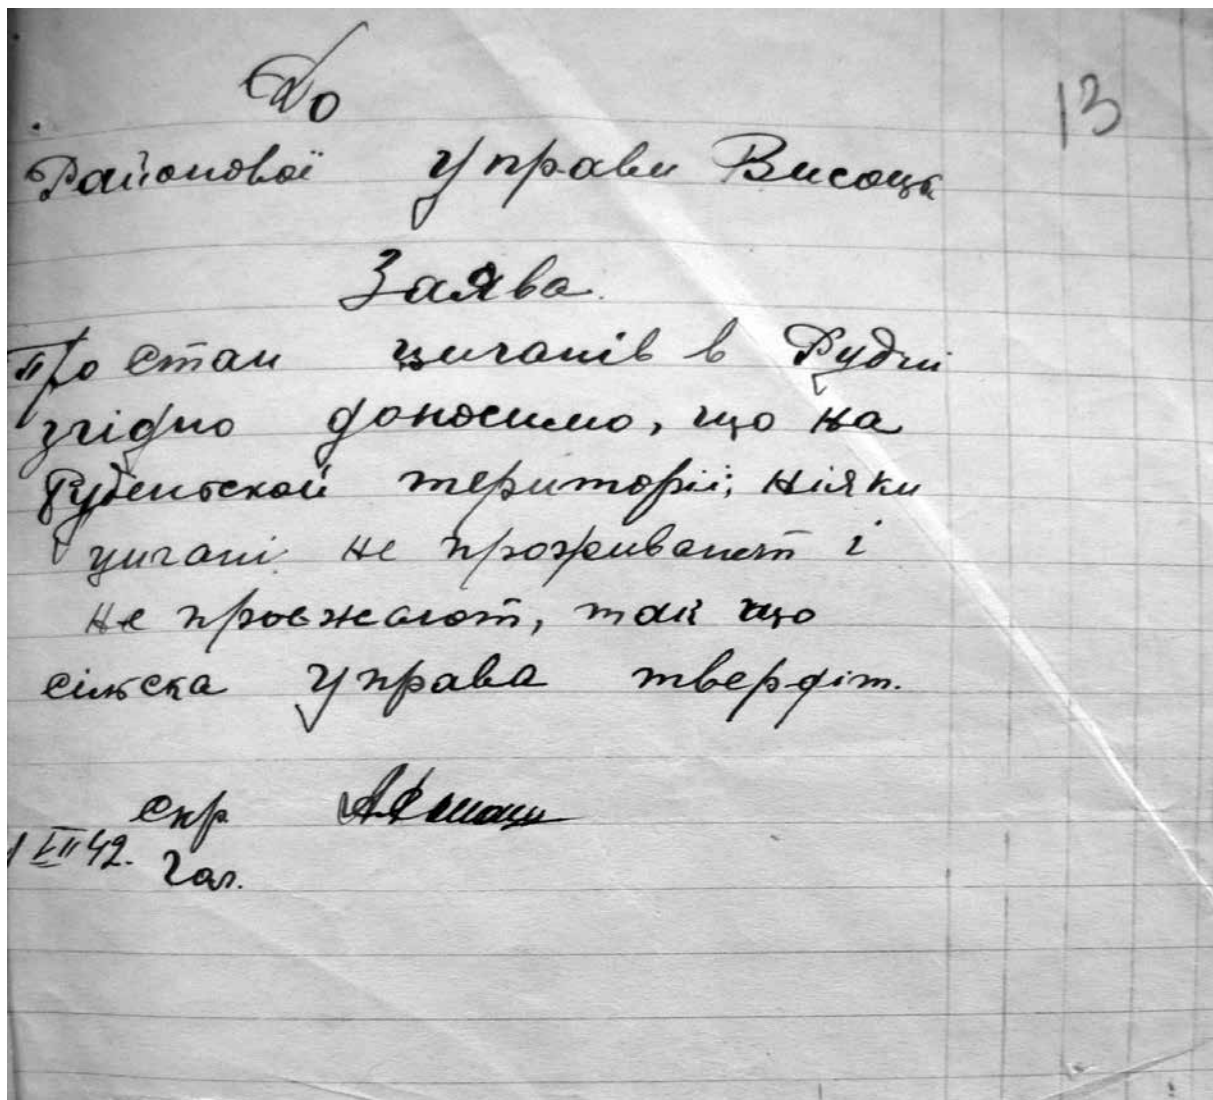 До
13
Районової Управи Висоцк
Заява.
Про стан циганів в Рудні
згідно доносимо, що на
Руденьской територіі, ніяки
цигані не проживають і
не проезжають, так що
сільска Управа твердіт.
скр
1 VII 42.
Гол.